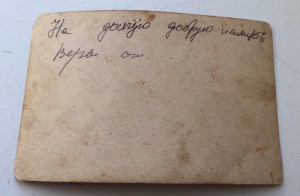 На долгую добрую память
Варе от